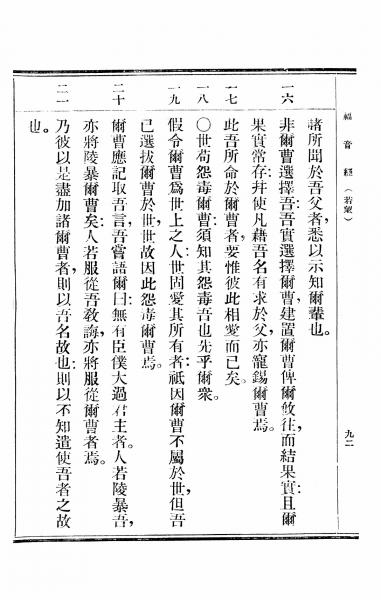 福音經（若翰）
九二
諸所聞於吾父者，悉以示知爾輩也。
一六 非爾曹選擇吾；吾實選擇爾曹，建置爾曹俾爾攸往，而結果實；且爾
果實常存，幷使凡藉吾名有求於父，亦寵錫爾曹焉。
一七 此吾所命於爾曹者，要惟彼此相愛而已矣。
一八 〇世苟怨毒爾曹；須知其怨毒吾也先乎爾衆。
一九 假令爾曹爲世上之人；世固愛其所有者；祇因爾曹不屬於世，但吾
已選拔爾曹於世，世故因此怨毒爾曹焉。
二十 爾曹應記取吾言，吾嘗語爾曰；無有臣僕大過君主者。人若陵暴吾，
亦將陵暴爾曹矣；人若服從吾敎誨，亦將服從爾曹者焉。
二一 乃彼以是盡加諸爾曹者，則以吾名故也；則以不知遣使吾者之故
也。